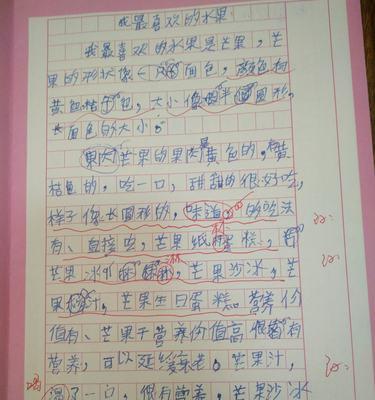 我最喜欢的水果
我最喜欢的水果是芒果，芒
果的形状像面包，颜色有
黄色桔色，大小像半圆形，
长面包的大小。
果肉芒果的果肉是黄色的，黄
桔色的，吃一口，甜甜的很好吃，
样子像长圆形的，味道的吃法
有、直接吃，芒果纸杯蛋糕，
芒果冰淋，芒果沙冰，芒
果汁，芒果生日蛋糕。营养价
值有、芒果干营养价值高很有
营养，可以延缓衰老。芒果汁，
喝了一口，很有营养，芒果沙冰